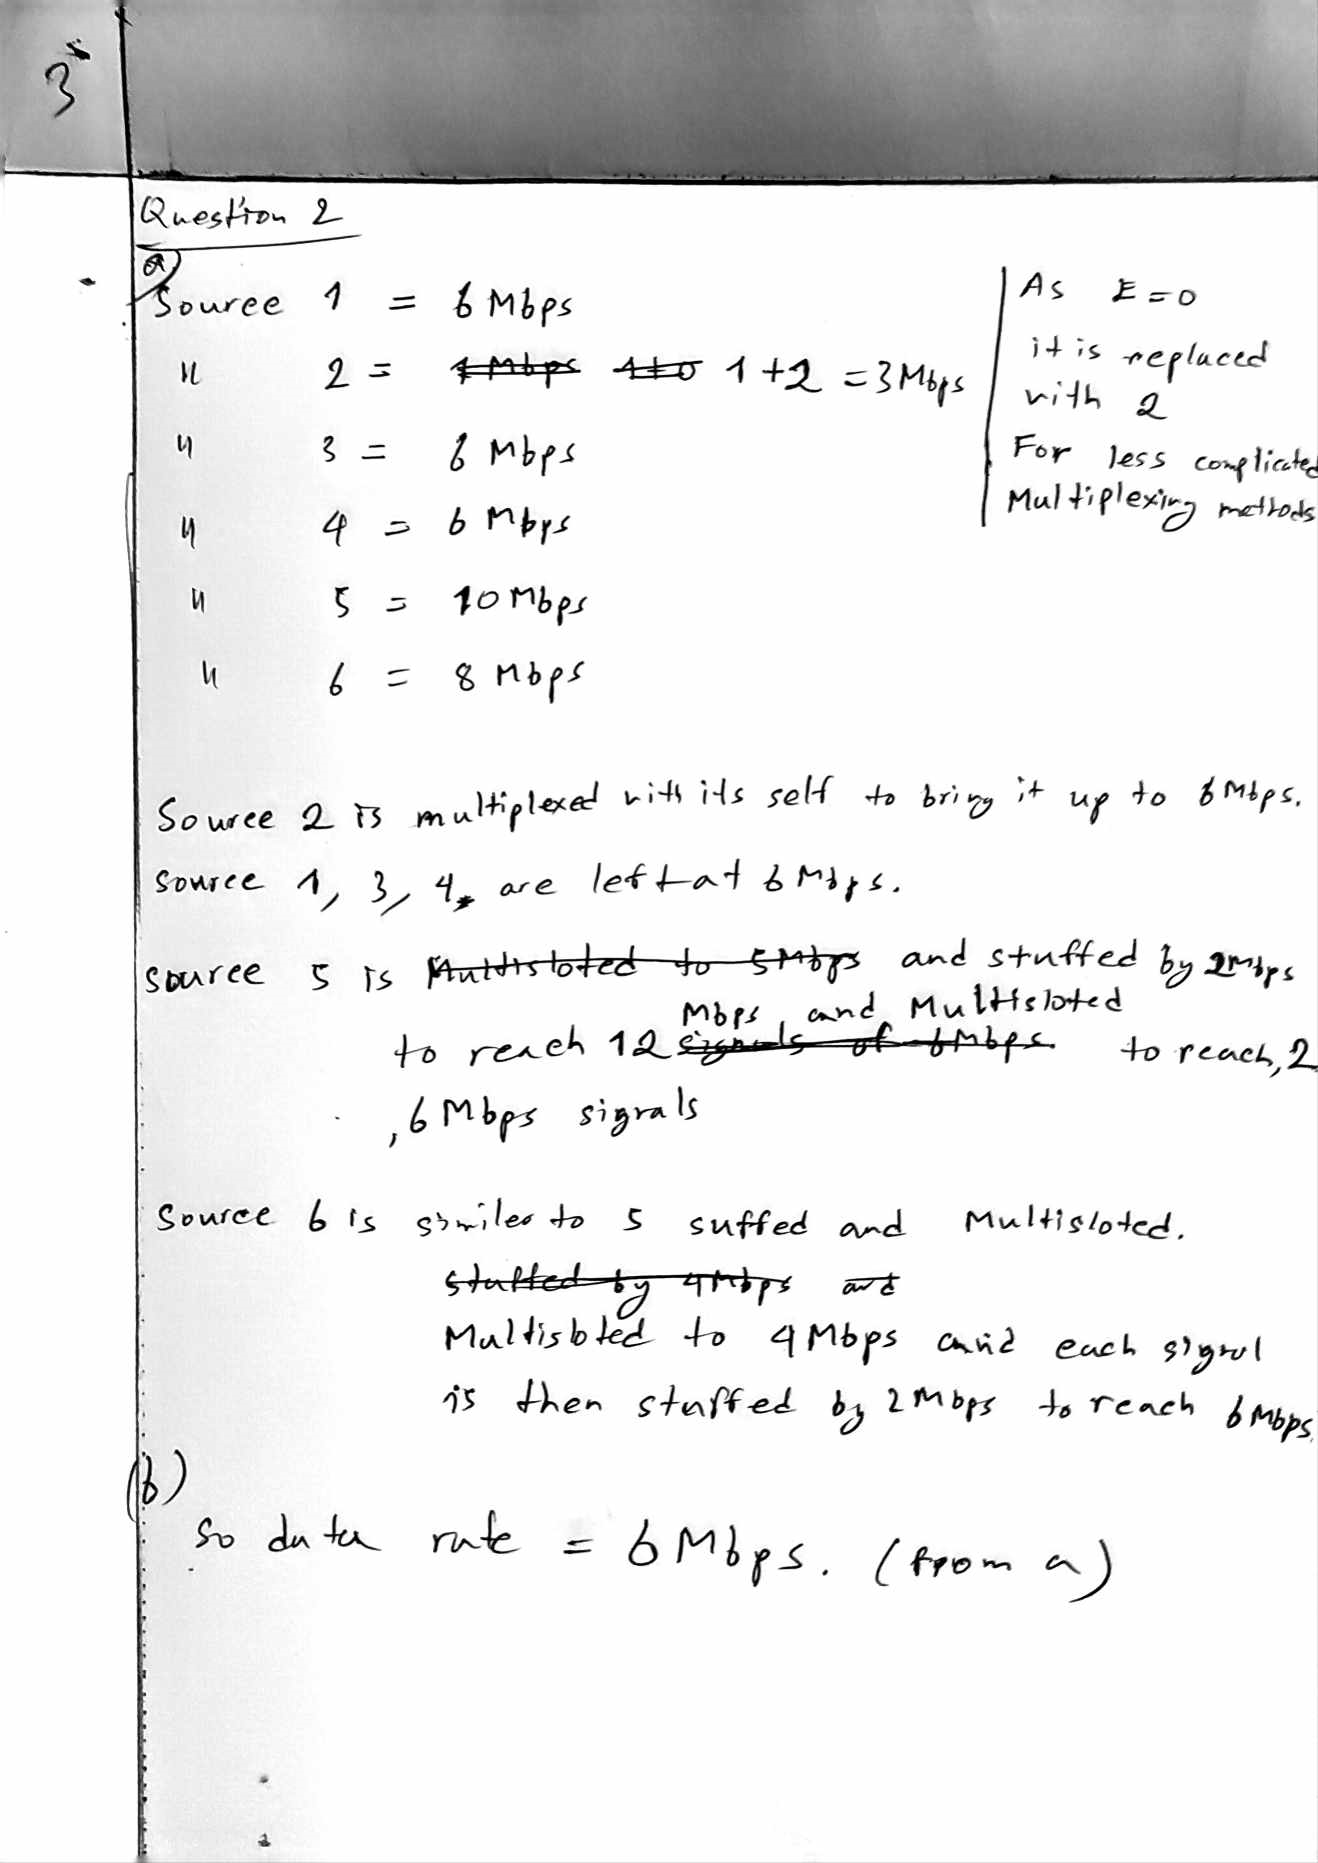 3
Question 2
a)
Source 1 = 6 Mbps
" 2 = 1 Mbps 1+0 1+2 = 3 Mbps
" 3 = 6 Mbps
" 4 = 6 Mbps
" 5 = 10 Mbps
" 6 = 8 Mbps
As E=0
it is replaced
with 2
For less complicated
Multiplexing methods
Source 2 is multiplexed with its self to bring it up to 6 Mbps.
Source 1, 3, 4, are left at 6 Mbps.
Source 5 is Multisloted to 5 Mbps and stuffed by 2 Mbps
Mbps, and Multisloted
to reach 12 signals of 6 Mbps. to reach, 2
, 6 Mbps signals
Source 6 is similer to 5 suffed and Multisloted.
stuffed by 4 Mbps and
Multisloted to 4 Mbps and each signal
is then stuffed by 2 Mbps to reach 6 Mbps.
(b)
So data rate = 6 Mbps. (from a)